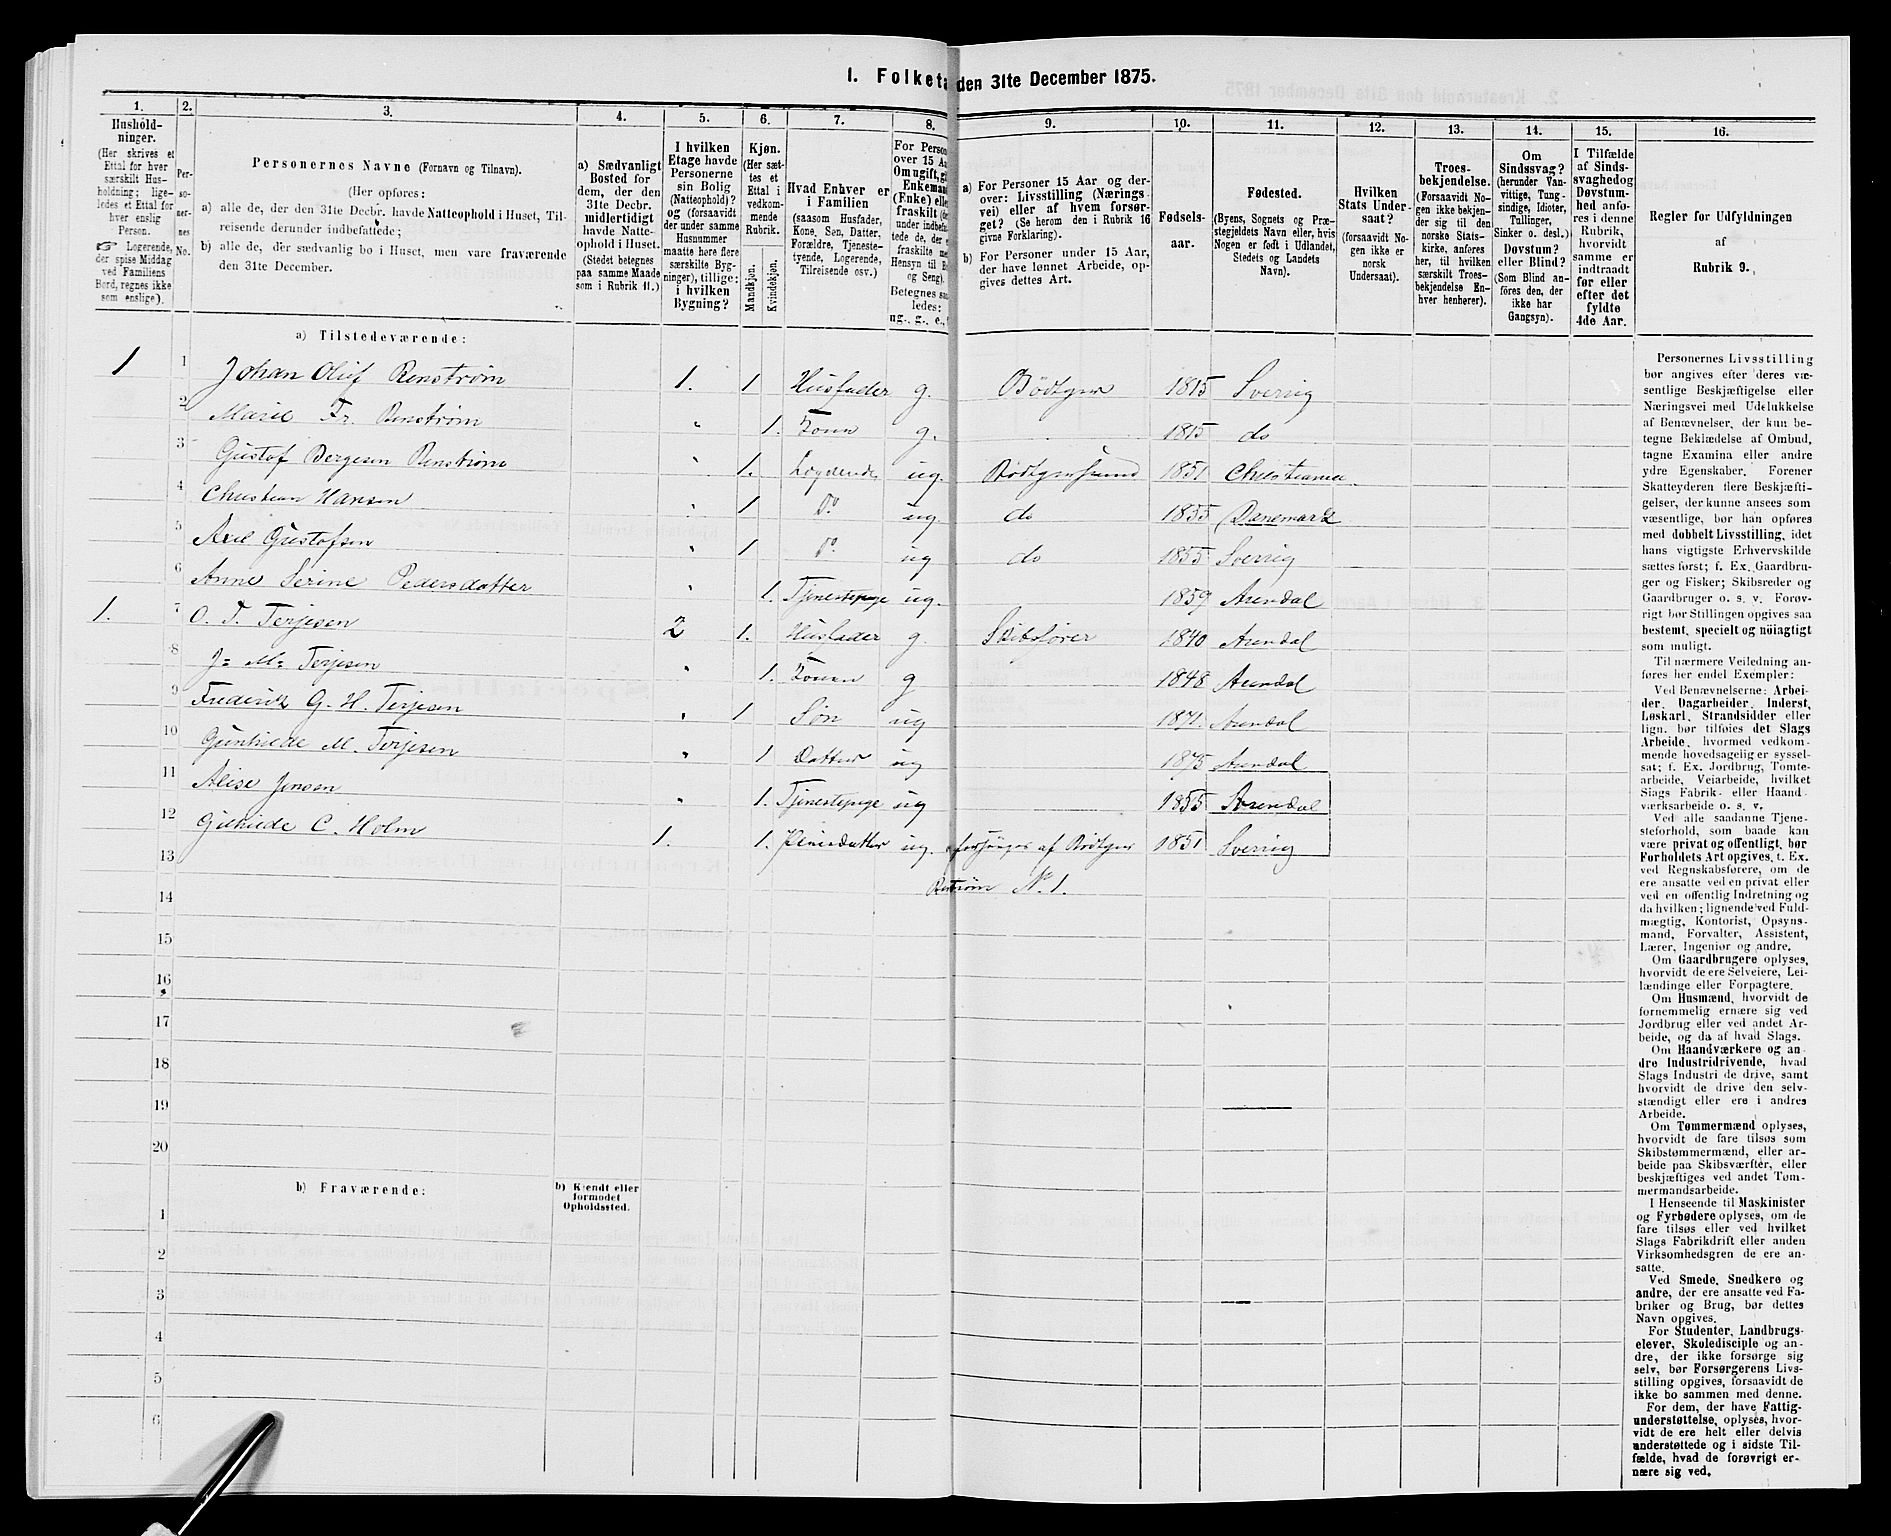 1. Folketæ den 31te December 1875.
1. 2. 3. 4. 5. 6. 7. 8. 9. 10. 11. 12. 13. 14. 15. 16.
Hushold-
ninger.
(Her skrives et
Ettal for hver
særskilt Hus-
holdning; lige-
ledes et Ettal for
hver enslig
Person.
☞ Logerende,
der spise Middag
ved Familiens
Bord, regnes ikke
som enslige).
Per-
so-
ner-
nes
No.
Personernes Navne (Fornavn og Tilnavn).
(Her opføres:
a) alle de, der den 31te Decbr. havde Natteophold i Huset, Til-
reisende derunder indbefattede;
b) alle de, der sædvanlig bo i Huset, men vare fraværende
den 31te December.
a) Sædvanligt
Bosted for
dem, der den
31te Decbr.
midlertidigt
havde Natte-
ophold i Huset.
(Stedet betegnes
paa samme Maade
som i Rubrik 11.)
I hvilken
Etage havde
Personerne
sin Bolig
(Natteophold)?
og (forsaavidt
der under samme
Husnummer
maatte høre flere
særskilte Byg-
ninger), tillige:
i hvilken
Bygning?
Kjøn.
(Her sæt-
tes et
Ettal i
vedkom-
mende
Rubrik.
Mandkjøn.
Kvindekjøn.
Hvad Enhver er
i Familien
(saasom Husfader,
Kone, Søn, Datter,
Forældre, Tjeneste-
tyende, Logerende,
Tilreisende osv.)
For Person
over 15 Aa
Om ugift, gi
Enkeman
(Enke) elle
fraskilt (de
under indbefa
tede de, der e
fraskilte me
Hensyn til Bo
og Seng).
Betegnes saa
ledes:
ug., g., e.,
a) For Personer 15 Aar og der-
over: Livsstilling (Nærings
vei) eller af hvem forsør-
get? (Se herom den i Rubrik 16
givne Forklaring).
b) For Personer under 15 Aar,
der have lønnet Arbeide, op-
gives dettes Art.
Fødsels-
aar.
Fødested.
(Byens, Sognets og Præ-
stegjeldets Navn eller, hvis
Nogen er født i Udlandet,
Stedets og Landets
Navn).
Hvilken
Stats Under-
saat?
(forsaavidt No-
gen ikke er
norsk
Undersaat).
Troes-
bekjendelse.
(Forsaavidt No-
gen ikke bekjen-
der sig til den
norske Stats-
kirke, anføres
her, til hvilken
særskilt Troes-
bekjendelse En-
hver henhører).
Om
Sindssvag?
(herunder Van-
vittige, Tung-
sindige, Idioter,
Tullinger,
Sinker o. desl.)
Døvstum?
eller Blind?
(Som Blind an-
føres den, der
ikke har
Gangsyn).
I Tilfælde
af Sinds-
svaghed og
Døvstum-
hed anfø-
res i denne
Rubrik,
hvorvidt
samme er
indtraadt
før eller
efter det
fyldte
4de Aar.
Regler for Udfyldningen
af
Rubrik 9.
a) Tilstedeværende:
1 1 Johan Oluf Renstrøm 1. 1 Husfader g. Bödtger 1815 Sverrig
2 Marie Fr. Renstrøm " 1. Konen g. 1815 do
3 Gustof Bergesen Renstrøm " 1. Logerende ug. Bödtgersvend 1851 Christiania
4 Christian Hansen " 1 Do ug. do 1855 Danemark
5 Axel Gustafsen " 1 Do ug do 1855 Sverrig
6 Anne Serine Pedersdatter " 1. Tjenestepige ug. 1859 Arendal
1. 7 O. T. Terjesen 2 1. Husfader g. Skibsfører 1840 Arendal
8 J. M. Terjesen " 1. Konen g 1848 Arendal
9 Frederik G. H. Terjesen " 1 Søn ug 1871. Arendal
10 Gunhilde M. Terjesen " 1 Datter ug 1875 Arendal
11 Alise Jensen " 1. Tjenestepige ug 1855 Arendal
12 C. Holm 1. 1. Pleiedatter ug. forsørges af Bödtger 1851 Sverrig
13 Renstrøm No 1.
14
15
16
17
18
19
20
b) Fraværende:
b) Kjendt eller
formodet
Opholdssted.
1
2
3
4
5
6
Personernes Livsstilling
bør angives efter deres væ-
sentlige Beskjæftigelse eller
Næringsvei med Udelukkelse
af Benævnelser, der kun be-
tegne Beklædelse af Ombud,
tagne Examina eller andre
ydre Egenskaber. Forener
Skatteyderen flere Beskjæfti-
gelser, der kunne ansees som
væsentlige, bør han opføres
med dobbelt Livsstilling, idet
hans vigtigste Erhvervskilde
sættes først; f. Ex. Gaardbru-
ger og Fisker; Skibsreder og
Gaardbruger o. s. v. Forøv-
rigt bør Stillingen opgives saa
bestemt, specielt og nöiagtigt
som muligt.
Til nærmere Veiledning an-
føres her endel Exempler:
Ved Benævnelserne: Arbei-
der, Dagarbeider, Inderst,
Løskarl, Strandsidder eller
lign. bør tilføies det Slags
Arbeide, hvormed vedkom-
mende hovedsagelig er syssel-
sat; f. Ex. Jordbrug, Tomte-
arbeide, Veiarbeide, hvilket
Slags Fabrik- eller Haand-
værksarbeide o. s. v.
Ved alle saadanne Tjene-
steforhold, som baade kan
være privat og offentligt, bør
Forholdets Art opgives, t. Ex.
ved Regnskabsførere, om de
ere ansatte ved en privat eller
ved en offentlig Indretning og
da hvilken; lignende ved Fuld-
mægtig, Kontorist, Opsyns-
mand, Forvalter, Assistent,
Lærer, Ingeniør og andre.
Om Gaardbrugere oplyses,
hvorvidt de ere Selveiere, Lei-
lændinge eller Forpagtere.
Om Husmænd, hvorvidt de
fornemmelig ernære sig ved
Jordbrug eller ved andet Ar-
beide, og da af hvad Slags.
Om Haandværkere og an-
dre Industridrivende, hvad
Slags Industri de drive, samt
hvorvidt de drive den selv-
stændigt eller ere i andres
Arbeide.
Om Tømmermænd oplyses,
hvorvidt de fare tilsøs som
Skibstømmermænd, eller ar-
beide paa Skibsværfter, eller
beskjæftiges ved andet Tøm-
mermandsarbeide.
I Henseende til Maskinister
og Fyrbødere oplyses, om de
fare tilsøs eller ved hvilket
Slags Fabrikdrift eller anden
Virksomhedsgren de ere an-
satte.
Ved Smede, Snedkere og
andre, der ere ansatte ved Fa-
briker og Brug, bør dettes
Navn opgives.
For Studenter, Landbrugs-
elever, Skoledisciple og an-
dre, der ikke forsørge sig
selv, bør Forsørgerens Livs-
stilling opgives, forsaavidt de
ikke bo sammen med denne.
For dem, der have Fattig-
understøttelse, oplyses, hvor-
vidt de ere helt eller delvis
understøttede og i sidste Til-
fælde, hvad de forøvrigt er-
nære sig ved.